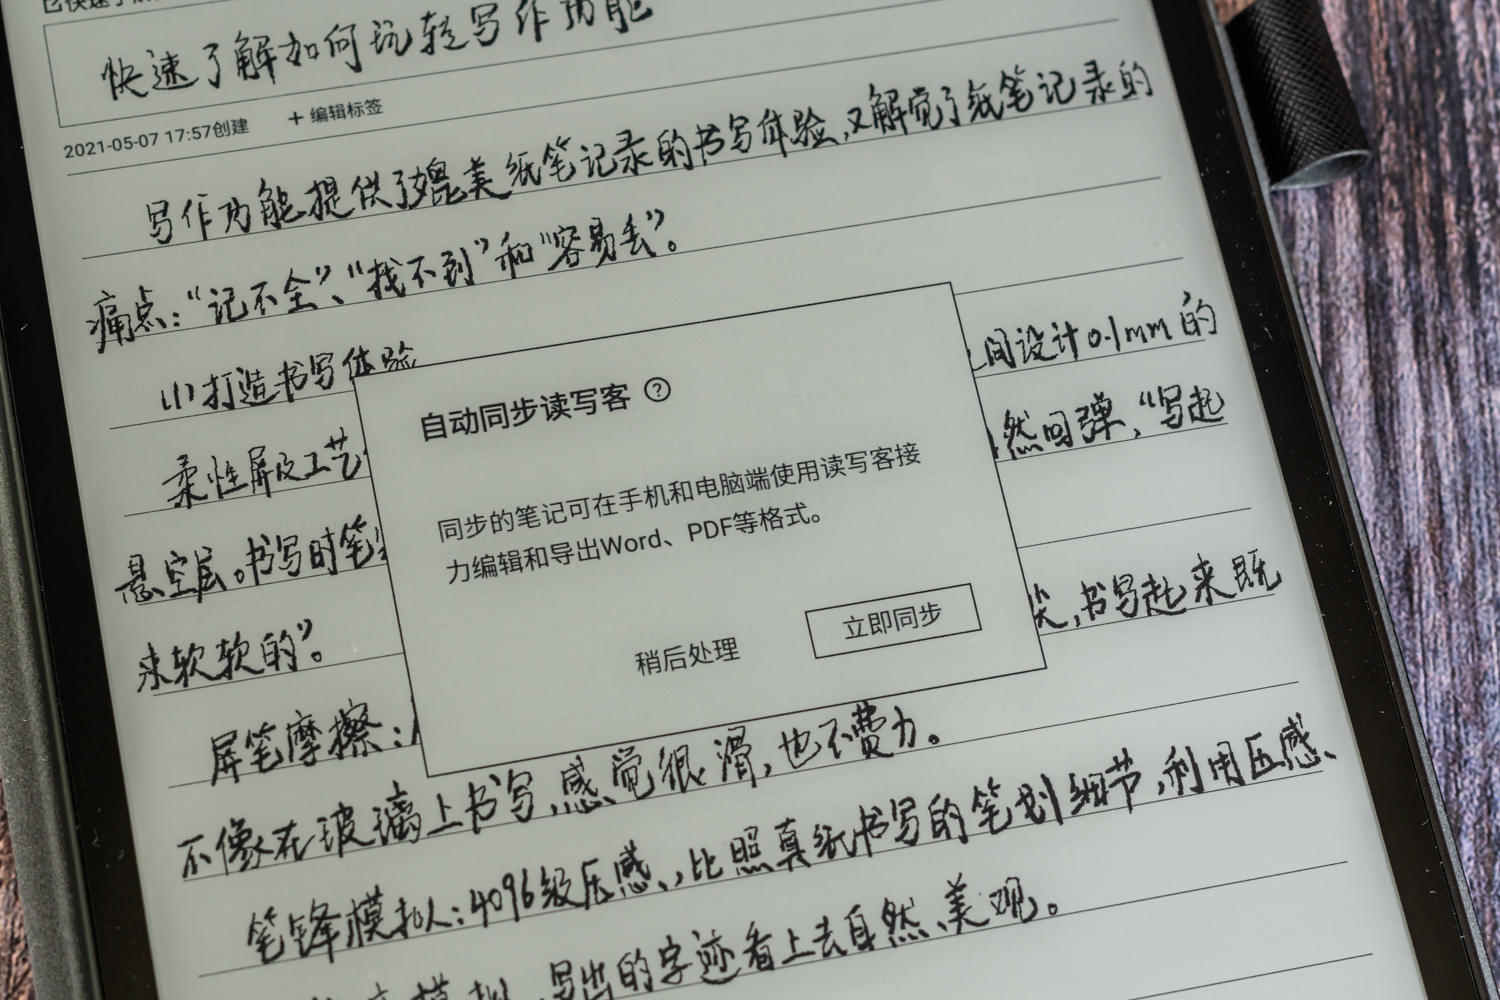 快速了解如何玩转写作功能
2021-05-07 17:57创建 + 编辑标签
写作功能提供了媲美纸笔记录的书写体验,又解觉了纸笔记录的
痛点:“记不全”、“找不到”和“容易丢”。
(1)打造书写体验
间设计0.1mm的
柔性屏及工艺
然回弹,“写起
悬空层。书写时笔
来软软的”。
尖,书写起来既
屏笔摩擦:
不像在玻璃上书写,感觉很滑,也不费力。
笔锋模拟:4096级压感,比照真纸书写的笔划细节,利用压感、
模拟,写出的字迹看上去自然、美观。
自动同步读写客 ?
同步的笔记可在手机和电脑端使用读写客接
力编辑和导出Word、PDF等格式。
稍后处理 立即同步